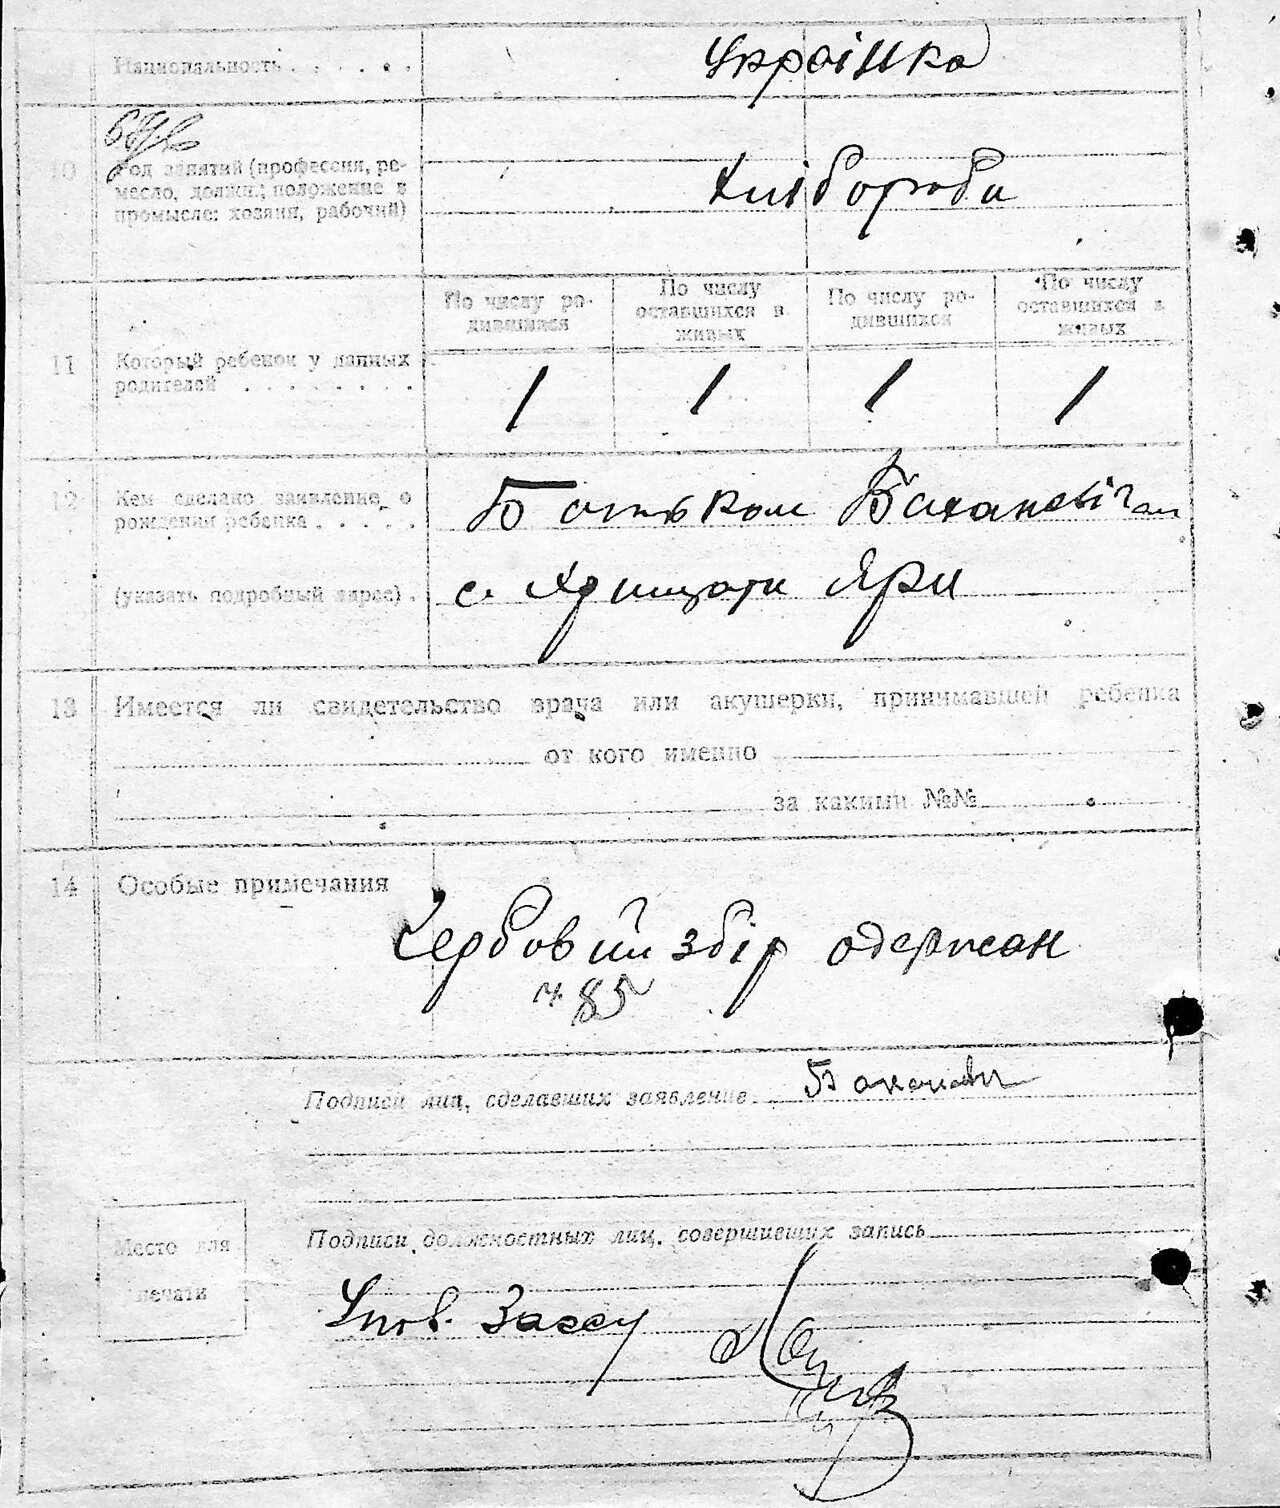 Национальность . . . . . . Українка
10 Род занятий (профессия, ре-
месло, должн.; положение в
промысле: хозяин, рабочий)
Хлібороби
По числу ро-
дившихся
По числу
оставшихся в
живых
По числу ро-
дившихся
По числу
оставшихся в
живых
11 Который ребенок у данных
родителей . . . . . . . .
1 1 1 1
12 Кем сделано заявление о
рождении ребенка . . . . .
Батьком
(указать подробный адрес) .
с. Хрищати Яри
13 Имеется ли свидетельство врача или акушерки, принимавшей ребенка
от кого именно
за какими №№
14 Особые примечания
Гербовий збір одержан
ч. 85
Подписи лиц, сделавших заявление
Подписи должностных лиц, совершивших запись
Место для
печати
Упов. Загсу